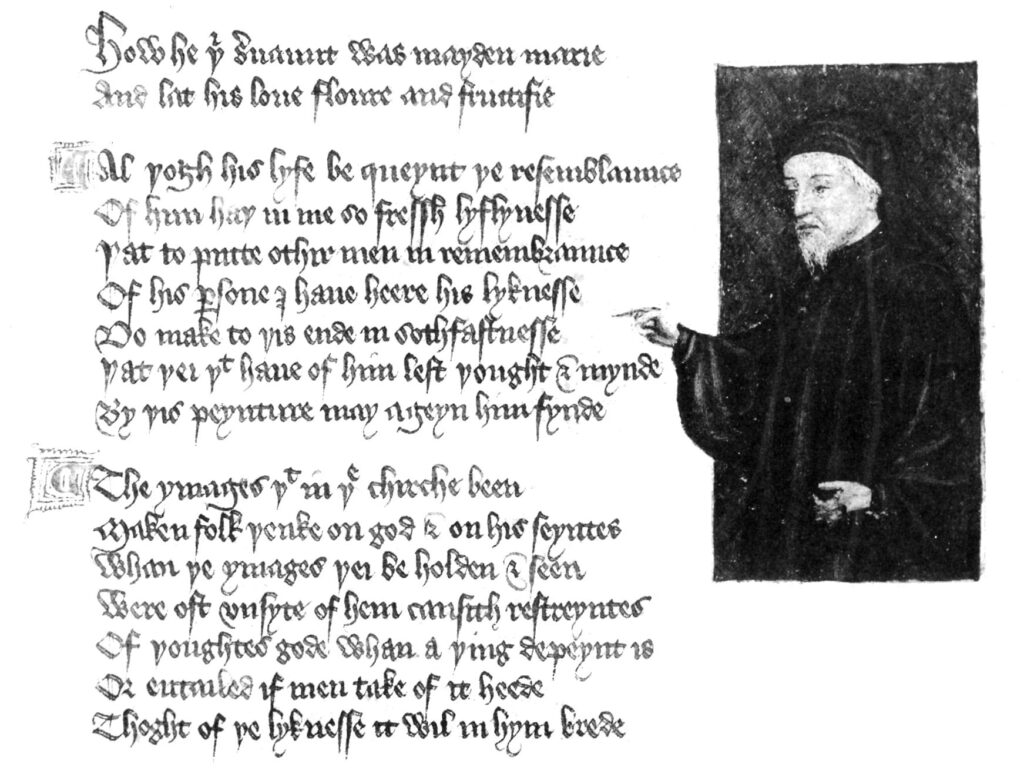 How he yͬ ẜuaunt was mayden marie
And lat his loue floure and fructifie
Al yogh his lyfe be queynt ye resemblaunce
Of him hay in me so fressh lyflynesse
Yat to putte othir men in remembraunce
Of his ꝑsone I haue heere his lyknesse
Do make to yis ende in sothfastnesse
Yat yei yͭ haue of him left yought & mynde
By yis peynture may ageyn him fynde
The ymages yͭ in yͤ chirche been
Maken folk yenke on god & on his seyntes
Whan ye ymages yei be holden & seen
Were oft vnsyte of hem causith restreyntes
Of youghtes gode whan a ying depeynt is
Or entailed if men take of it heede
Thoght of ye lyknesse it wil in hym brede